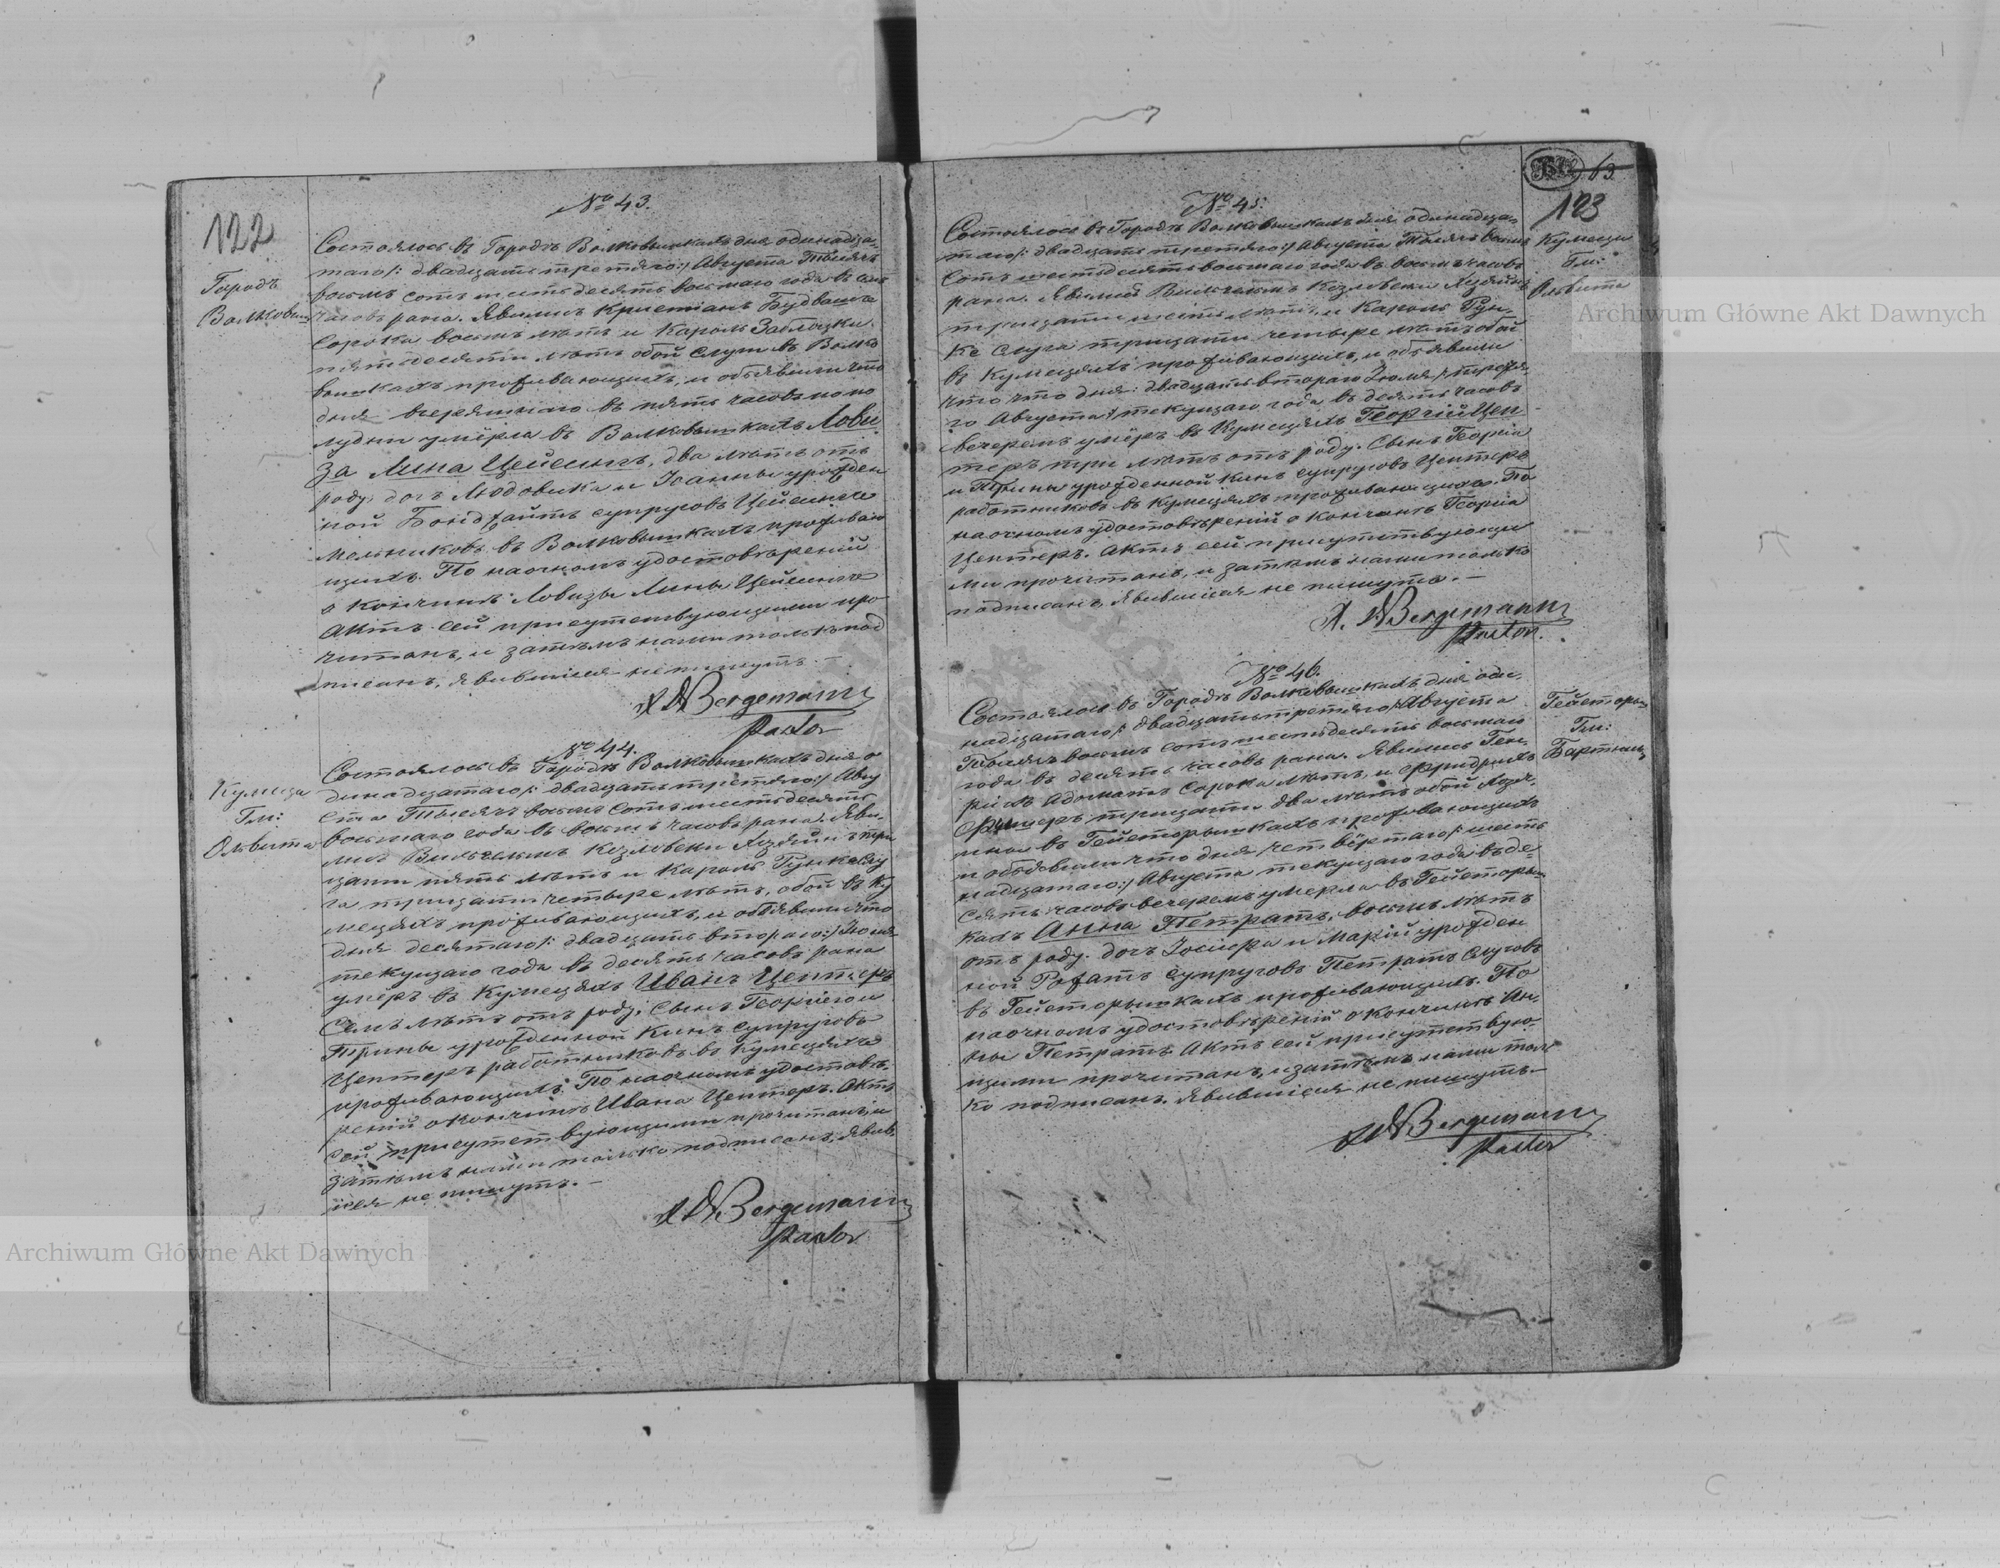 122
№ 43.
Городъ
Волковыш
Состоялось въ Городѣ Волковышкахъ дня одинадца-
таго /: двадцать третяго :/ Августа Тысяча
восемь сотъ шестьдесятъ восьмаго года въ семь
часовъ рана. Явились Кристіанъ Будвашъ
сорока восемь лѣтъ и Кароль Заблоцки
пятьдесяти лѣтъ обой слуги въ Волко
вышкахъ проживающихъ, и объявили что
дня вчерашнаго въ пять часовъ попо
лудни умёрла въ Волковышкахъ Лови
за Лина Цейсингъ, два лѣтъ отъ
роду, дочь Людовика и Іоанны урожден
ной Бондзайтъ супруговъ Цейсингъ
мельниковъ въ Волковышкахъ проживаю
щихъ. По наочномъ удостовѣреній
о кончинѣ Ловизы Лины Цейсингъ
Актъ сей присутствующими про
читанъ, и затѣмъ нами только под
писанъ, явившіися не пишутъ. —
Bergemann
Pastor
№ 44.
Кумеца
Гм:
Ольвита
Состоялось въ Городѣ Волковышкахъ дня о
динадцатаго /: двадцать третяго :/ Авгу
ста Тысяча восемь сотъ шестьдесятъ
восьмаго года въ восемь часовъ рана. Яви-
лись Вильгельмъ Козловски Хозяинъ три
цати пять лѣтъ и Кароль Гунке слу
га трицати четыре лѣтъ, обой въ Ку
мецяхъ проживающихъ, и объявили что
дня десятаго /: двадцать втораго :/ Июля
текущаго года въ десять часовъ рана
умёръ въ Кумецяхъ Иванъ Центеръ
семь лѣтъ отъ роду, сынъ Георгія и
Трины урожденной Кинъ супруговъ
Центеръ работниковъ въ Кумецяхъ
проживающихъ. По наочномъ удостовѣ-
реній о кончинѣ Ивана Центеръ. Актъ
сей присутствующими прочитанъ, и
затѣмъ нами только подписанъ, явив.
іися не пишутъ. —
Bergemann
Pastor
63
123
№ 45.
Кумеци
Гм:
Ольвита
Состоялось въ Городѣ Волковышкахъ дня одинадца-
таго /: двадцать третяго :/ Августа Тысяча восемь
сотъ шестьдесятъ восьмаго года въ восемь часовъ
рана. Явились Вильгельмъ Козловски Хозяинъ
трицати пять лѣтъ, и Кароль Гун-
ке слуга трицати четыре лѣтъ обой
въ Кумецяхъ проживающихъ, и объявили
что дня /: двадцать втораго Июля / третя-
го Августа :/ текущаго года въ десять часовъ
вечеромъ умёръ въ Кумецяхъ Георгій Цен
теръ три лѣтъ отъ роду. Сынъ Георгія
и Трины урожденной Кинъ супруговъ Центеръ
работниковъ въ Кумецяхъ проживающихъ. По
наочномъ удостовѣреній о кончинѣ Георгія
Центеръ. Актъ сей присутствующи
ми прочитанъ, и затѣмъ нами только
подписанъ, явившіися не пишутъ. —
Bergemann
Pastor.
№ 46.
Гейсторы
Гм:
Бартники
Состоялось въ Городѣ Волковышкахъ дня оди.
надцатаго /: двадцать третяго :/ Августа
Тысяча восемь сотъ шестьдесятъ восьмаго
года въ десять часовъ рана. Явились Ген-
рихъ Адоматъ сорока лѣтъ, и Фридрихъ
Фишеръ трицати два лѣтъ обой Хозя.
ины въ Гейсторышкахъ проживающихъ
и объявили что дня четвёртаго /: шест
надцатаго :/ Августа текущаго года въ де-
сять часовъ вечеромъ умерла въ Гейсторыш
кахъ Анна Петратъ, восемь лѣтъ
отъ роду. дочь Іосифа и Марій урожден
ной Рогатъ супруговъ Петратъ слуговъ
въ Гейсторышкахъ проживающихъ. По
наочномъ удостовѣреній о кончинѣ Ан-
ны Петратъ. Актъ сей присутствую-
щими прочитанъ, и затѣмъ нами толь
ко подписанъ. Явившіися не пишутъ —
Bergemann
Pastor
Archiwum Główne Akt Dawnych
Archiwum Główne Akt Dawnych